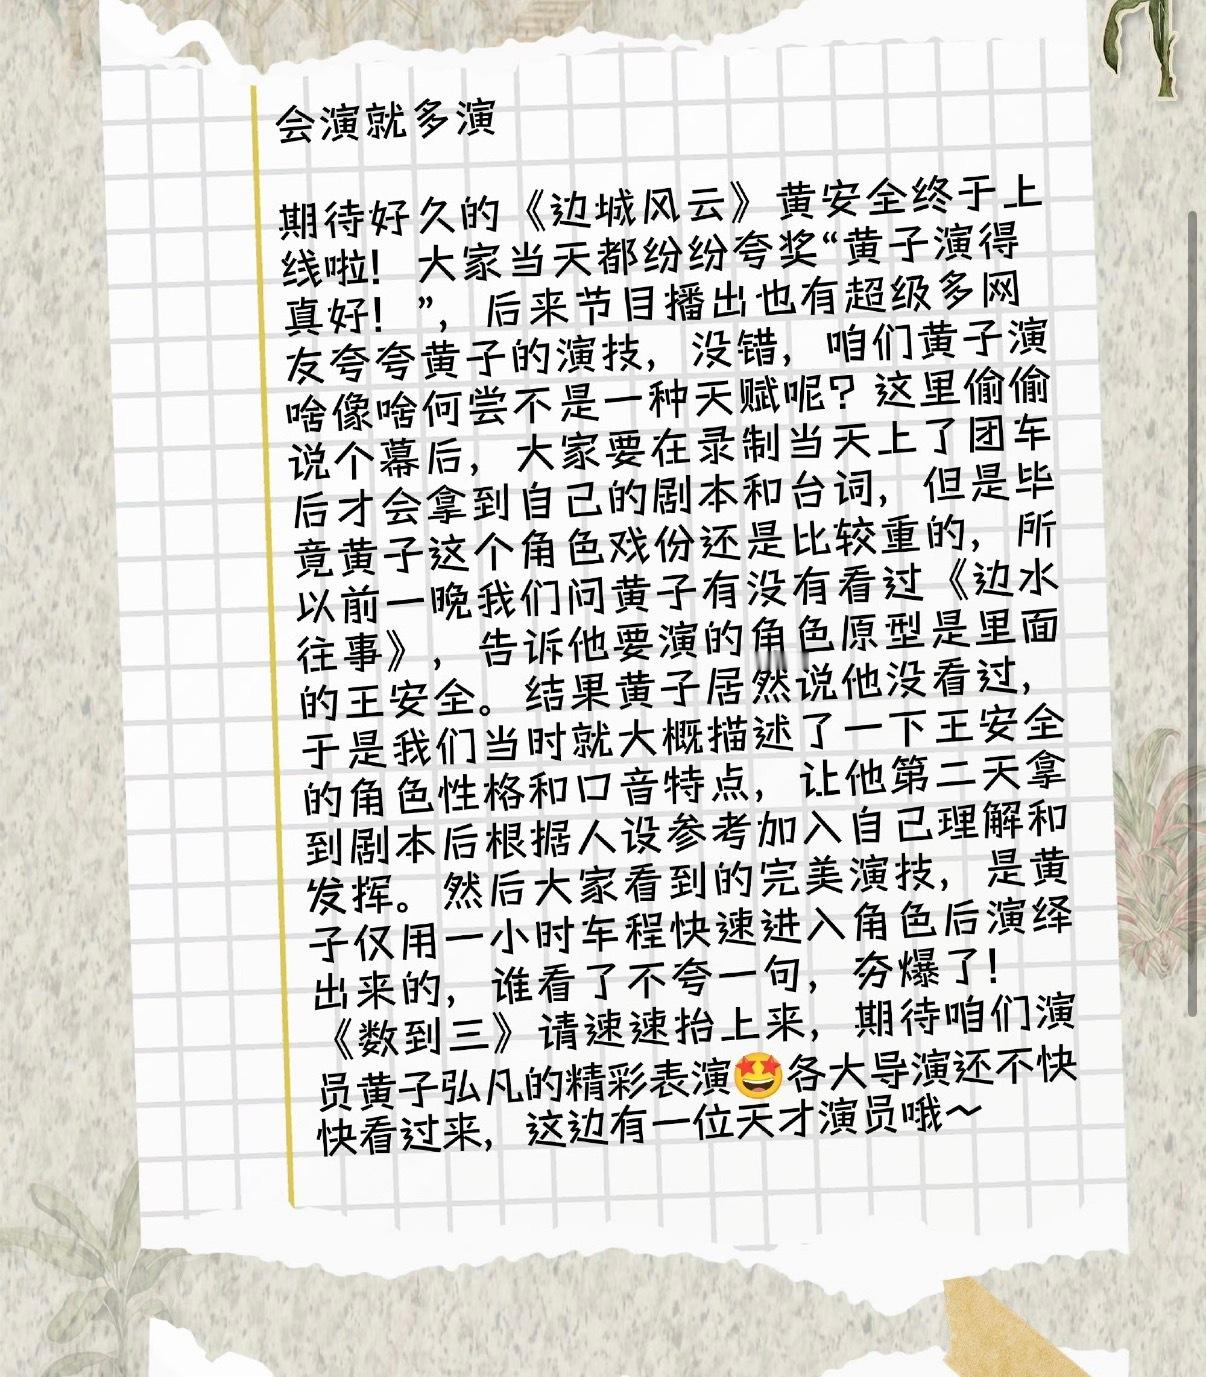 会演就多演
期待好久的《边城风云》黄安全终于上
线啦！大家当天都纷纷夸奖“黄子演得
真好！”，后来节目播出也有超级多网
友夸夸黄子的演技，没错，咱们黄子演
啥像啥何尝不是一种天赋呢？这里偷偷
说个幕后，大家要在录制当天上了团车
后才会拿到自己的剧本和台词，但是毕
竟黄子这个角色戏份还是比较重的，所
以前一晚我们问黄子有没有看过《边水
往事》，告诉他要演的角色原型是里面
的王安全。结果黄子居然说他没看过，
于是我们当时就大概描述了一下王安全
的角色性格和口音特点，让他第二天拿
到剧本后根据人设参考加入自己理解和
发挥。然后大家看到的完美演技，是黄
子仅用一小时车程快速进入角色后演绎
出来的，谁看了不夸一句，夯爆了！
《数到三》请速速抬上来，期待咱们演
员黄子弘凡的精彩表演🤩各大导演还不快
快看过来，这边有一位天才演员哦～